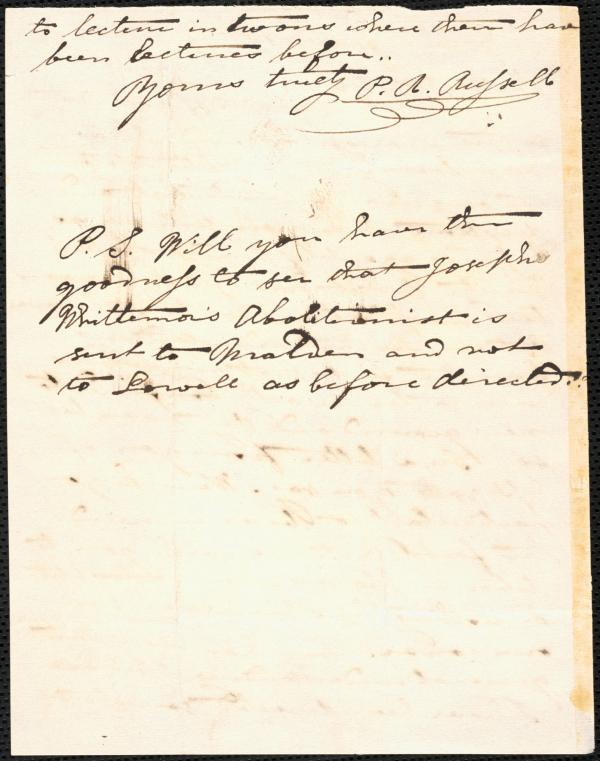 to lecture in towns where there have
been lectures before..
Yours truly P. R. Russell
P. S. Will you have the
goodness to see that Joseph
Whittemore's Abolitionist is
sent to Malden and not
to Lowell as before directed.